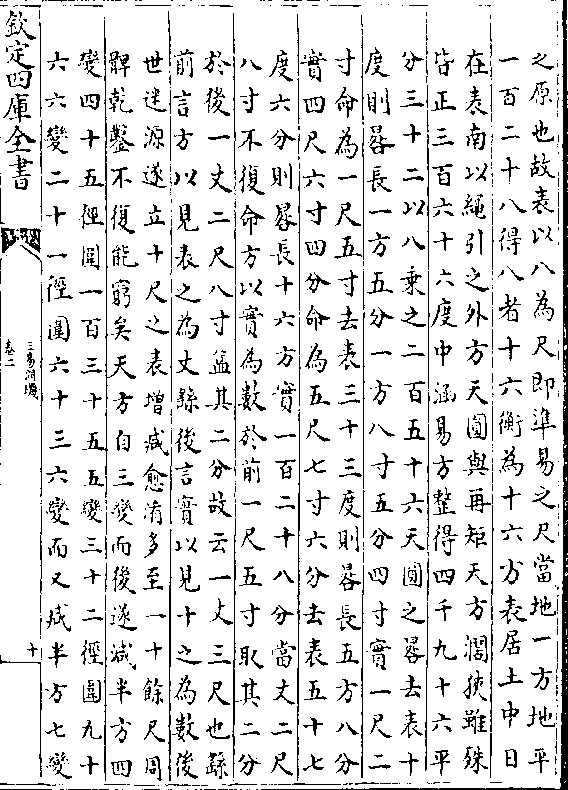 之原也故表以八為尺即準易之尺當地一方地平
一百二十八得八者十六衡為十六方表居土中日
在表南以繩引之外方天圓與再矩天方濶狹雖殊
皆正三百六十六度中涵易方整得四千九十六平
分三十二以八乘之二百五十六天圓之晷去表十
度則晷長一方五分一方八寸五分四寸實一尺二
寸命為一尺五寸去表三十三度則晷長五方八分
實四尺六寸四分命為五尺七寸六分去表五十七
度六分則晷長十六方實一百二十八分當丈二尺
八寸不復命方以實為數於前一尺五寸取其二分
於後一丈二尺八寸益其二分故云一丈三尺也繇
前言方以見表之為丈繇後言實以見十之為數後
世迷源遂立十尺之表增減愈淆多至一十餘尺周
髀乾鑿不復能窮矣天方自三變而後遂減半方四
變四十五徑圍一百三十五五變三十二徑圍九十
六六變二十一徑圍六十三六變而又減半方七變
欽定四庫全書
三易洞璣
卷二
十